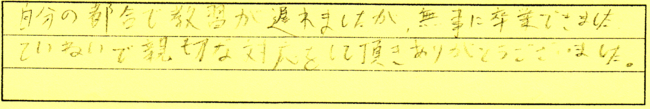 自分の都合で教習が遅れましたが、無事に卒業できました
ていねいで親切な対応をして頂きありがとうございました。